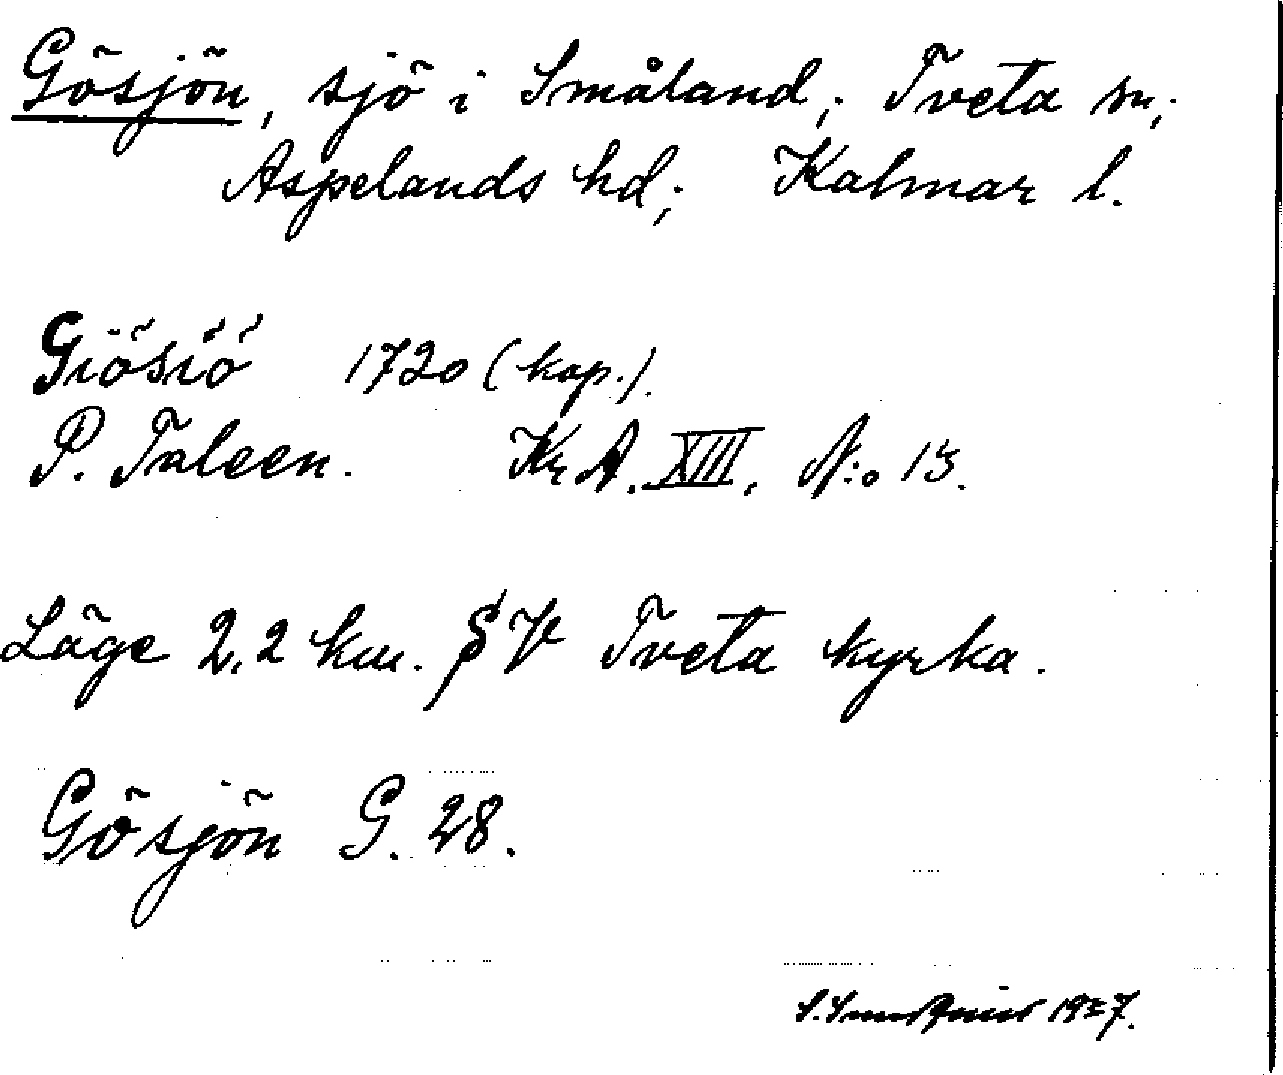 Gösjön, sjö i Småland; Tveta sn;
Aspelands hd; Kalmar l.
Giösiö 1720 (kop.).
P. Taleen. Kr A. XIII, N:o 13.
Läge 2,2 km. SV Tveta kyrka.
Gösjön G. 28.
1927.